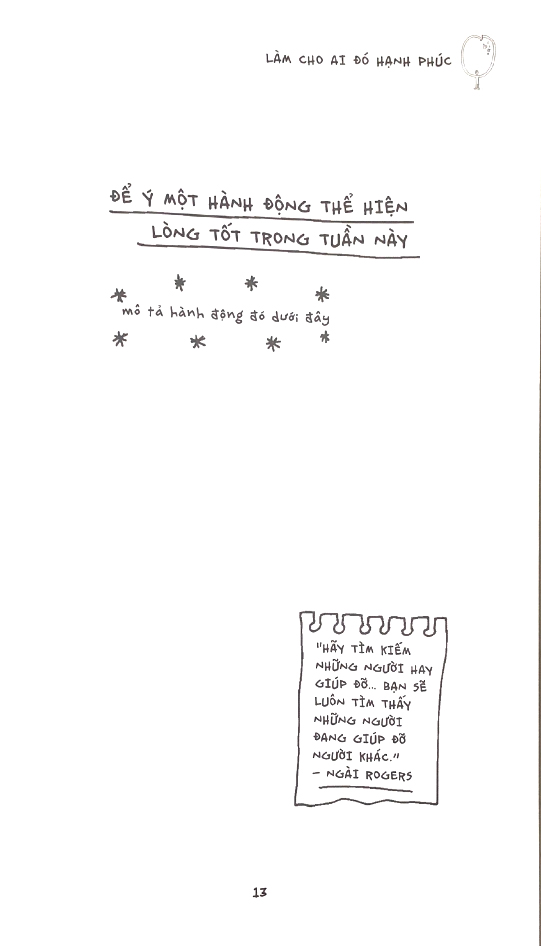 LÀM CHO AI ĐÓ HẠNH PHÚC
ĐỂ Ý MỘT HÀNH ĐỘNG THỂ HIỆN
LÒNG TỐT TRONG TUẦN NÀY
mô tả hành động đó dưới đây
"HÃY TÌM KIẾM
NHỮNG NGƯỜI HAY
GIÚP ĐỠ... BẠN SẼ
LUÔN TÌM THẤY
NHỮNG NGƯỜI
ĐANG GIÚP ĐỠ
NGƯỜI KHÁC."
– NGÀI ROGERS
13